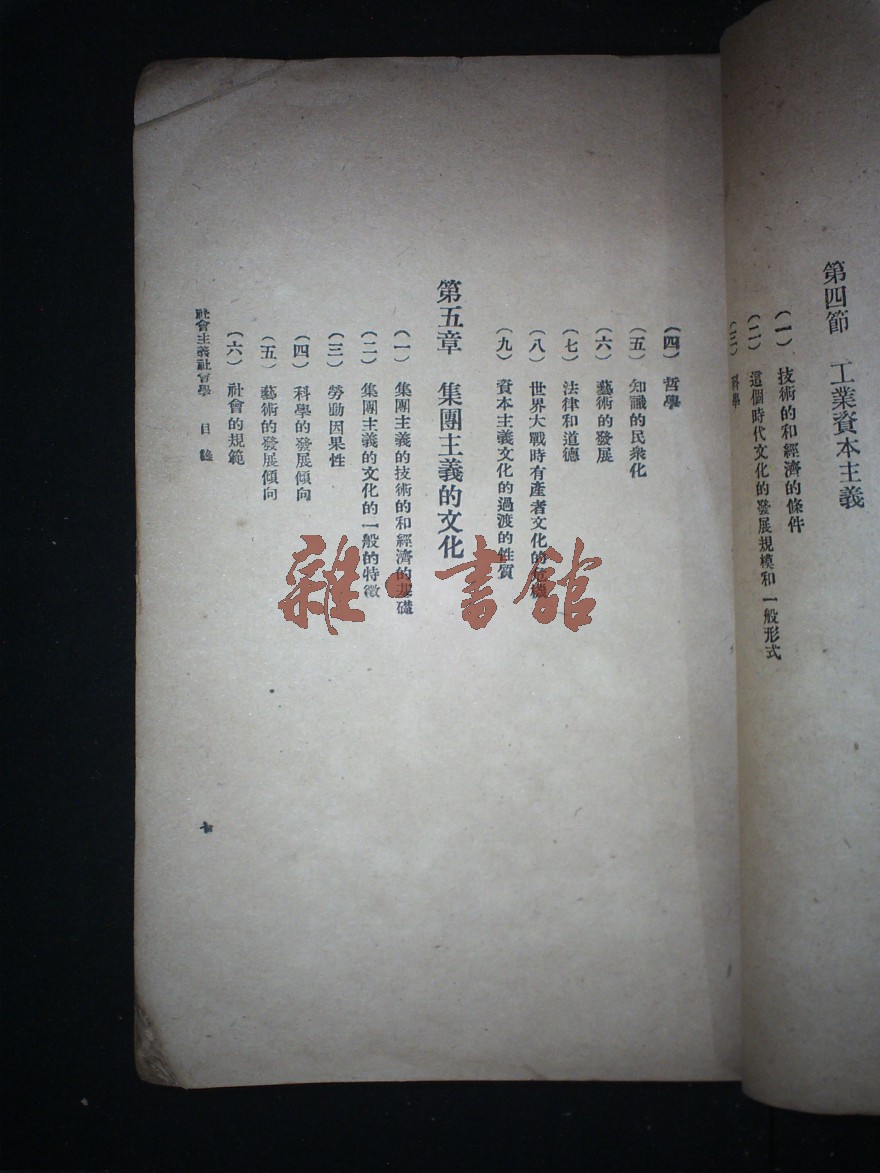 第四節 工業資本主義
(一) 技術的和經濟的條件
(二) 這個時代文化的發展規模和一般形式
(三) 科學
(四) 哲學
(五) 知識的民衆化
(六) 藝術的發展
(七) 法律和道德
(八) 世界大戰時有產者文化的危機
(九) 資本主義文化的過渡的性質
第五章 集團主義的文化
(一) 集團主義的技術的和經濟的基礎
(二) 集團主義的文化的一般的特徵
(三) 勞動因果性
(四) 科學的發展傾向
(五) 藝術的發展傾向
(六) 社會的規範
社會主義社會學 目錄
雜·書館